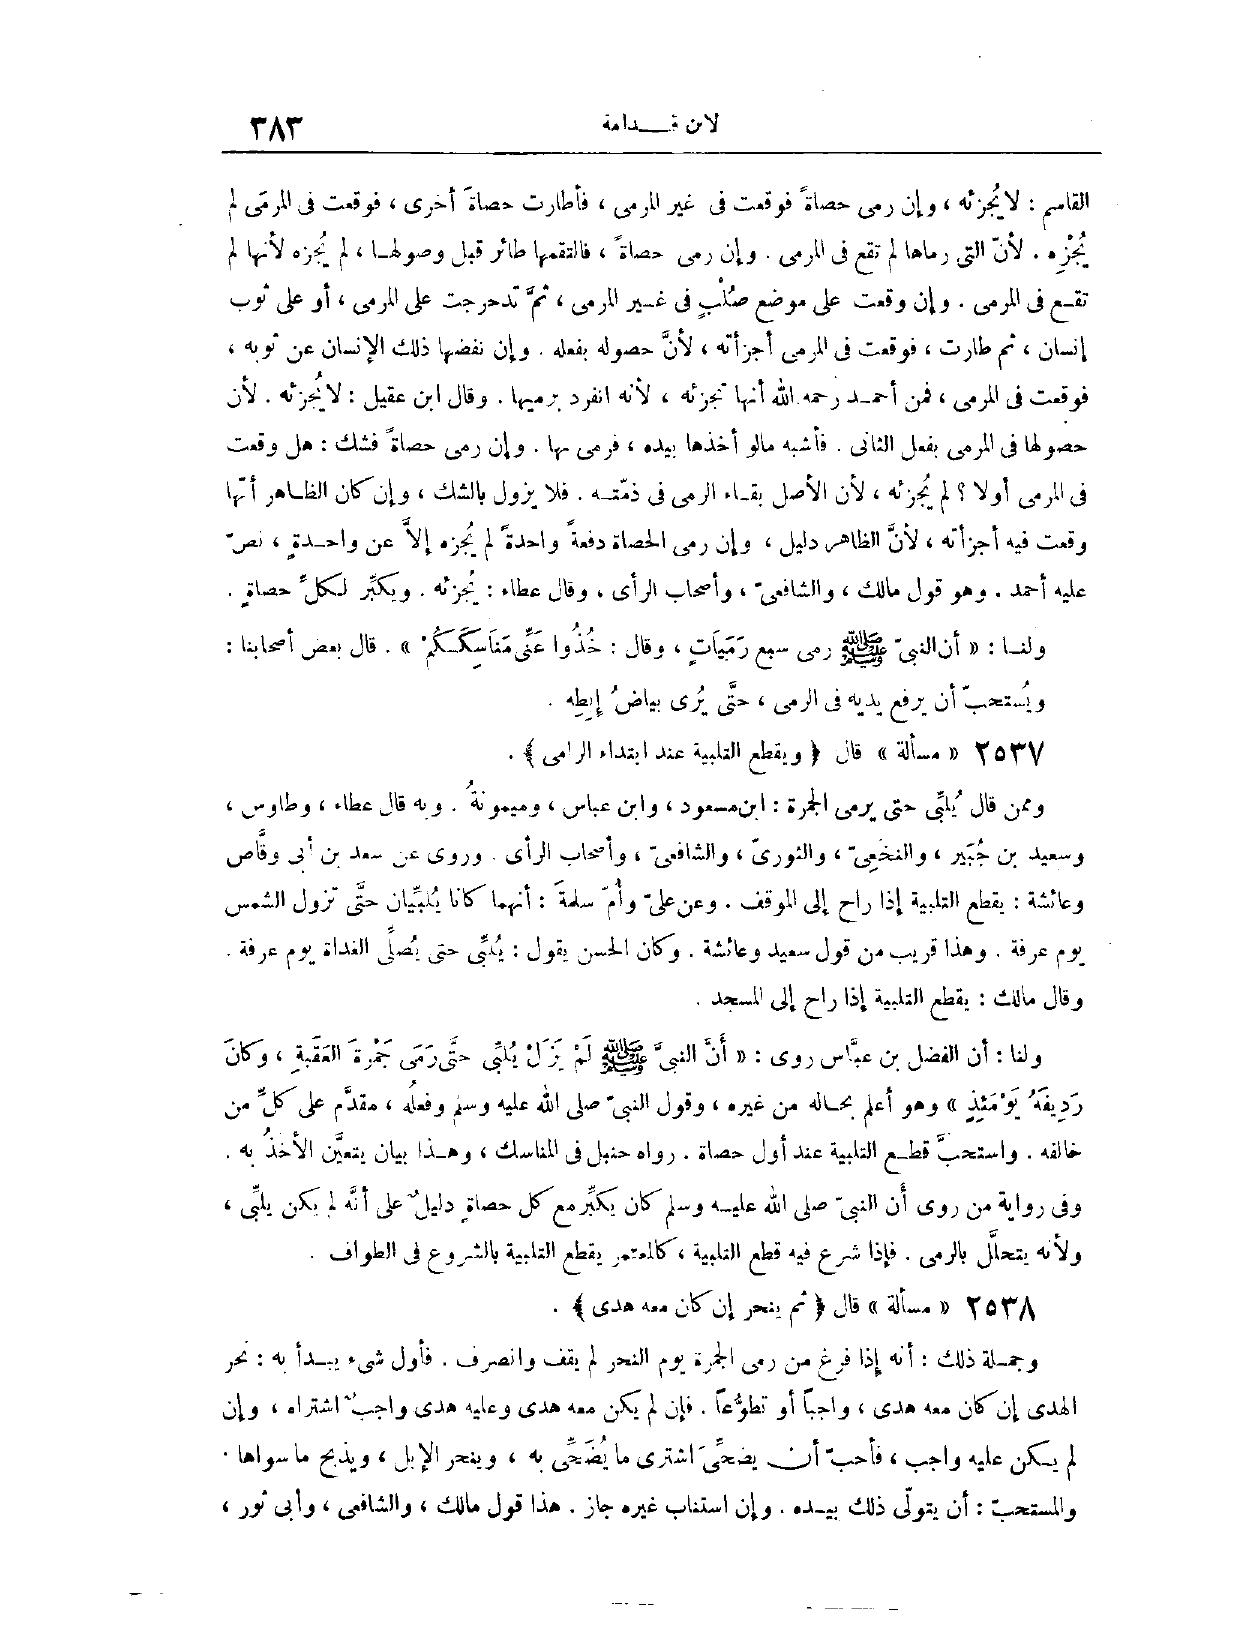 لابن قـــدامة ٣٨٣
القاسم : لا يُجزئه ، وإن رمى حصاةً فوقعت فى غير المرمى ، فأطارت حصاةً أخرى ، فوقعت فى المرمَى لم
يُجْزِه . لأنّ التى رماها لم تقع فى المرمى . وإن رمى حصاةً ، فالتقمها طائر قبل وصولهـا ، لم يُجزه لأنها لم
تقـع فى المرمى . وإن وقعت على موضع صُلْبٍ فى غـير المرمى ، ثمَّ تدحرجت على المرمى ، أو على ثوب
إنسان ، ثم طارت ، فوقعت فى المرمى أجزأته ، لأنَّ حصوله بفعله . وإن نفضها ذلك الإنسان عن ثوبه ،
فوقعت فى المرمى ، فمن أحمـد رحمه الله أنها تجزئه ، لأنه انفرد برميها . وقال ابن عقيل : لا يُجزئه . لأن
حصولها فى المرمى بفعل الثانى . فأشبه مالو أخذها بيده ، فرمى بها . وإن رمى حصاةً فشك : هل وقعت
فى المرمى أولا ؟ لم يُجزئه ، لأن الأصل بقـاء الرمى فى ذمّتـه . فلا يزول بالشك ، وإن كان الظـاهر أنّها
وقعت فيه أجزأته ، لأنَّ الظاهر دليل ، وإن رمى الحصاة دفعةً واحدةً لم يُجزه إلاَّ عن واحـدةٍ ، نصّ
عليه أحمد . وهو قول مالك ، والشافعىّ ، وأصحاب الرأى ، وقال عطاء : يُجزئه . ويكبِّر لـكلِّ حصاةٍ .
ولنـا : « أن النبىّ ﷺ رمى سبع رَمَيَاتٍ ، وقال : خُذُوا عَنِّى مَنَاسِكَـكُمْ » . قال بعض أصحابنا :
ويُستحبّ أن يرفع يديه فى الرمى ، حتَّى يُرى بياضُ إبطِه .
٢٥٣٧ « مسألة » قال ﴿ ويقطع التلبية عند ابتداء الرامى ﴾ .
وممن قال يُلبِّى حتى يرمى الجمرة : ابن مسعود ، وابن عباس ، وميمونةُ . وبه قال عطاء ، وطاوس ،
وسعيد بن جُبَير ، والنخَعِىّ ، والثورىّ ، والشافعىّ ، وأصحاب الرأى . وروى عن سعد بن أبى وقَّاص
وعائشة : يقطع التلبية إذا راح إلى الموقف . وعن علىّ وأُمّ سلمةَ : أنهما كانا يُلبِّيان حتَّى تزول الشمس
يوم عرفة . وهذا قريب من قول سعيد وعائشة . وكان الحسن يقول : يُلبِّى حتى يُصلِّى الغداة يوم عرفة .
وقال مالك : يقطع التلبية إذا راح إلى المسجد .
ولنا : أن الفضل بن عبَّاس روى : « أَنَّ النبىَّ ﷺ لَمْ يَزَلْ يُلبِّى حتَّى رَمَى جَمْرةَ العَقَبةِ ، وكانَ
رَدِيفَهُ يَوْمَئِذٍ » وهو أعلم بحـاله من غيره ، وقول النبىّ صلى الله عليه وسلم وفعلُه ، مقدَّم على كلِّ من
خالفه . واستحبَّ قطـع التلبية عند أول حصاة . رواه حنبل فى المناسك ، وهـذا بيان يتعيَّن الأخذُ به .
وفى رواية من روى أن النبىّ صلى الله عليـه وسلم كان يكبِّر مع كل حصاةٍ دليلٌ على أنَّه لم يكن يلبِّى ،
ولأنه يتحلَّل بالرمى . فإذا شرع فيه قطع التلبية ، كالمعتمر يقطع التلبية بالشروع فى الطواف .
٢٥٣٨ « مسألة » قال ﴿ ثم ينحر إن كان معه هدى ﴾ .
وجمـلة ذلك : أنه إذا فرغ من رمى الجمرة يوم النحر لم يقف وانصرف . فأول شىء يبـدأ به : نحر
الهدى إن كان معه هدى ، واجباً أو تطوُّعاً . فإن لم يكن معه هدى وعليه هدى واجبٌ اشتراه ، وإن
لم يـكن عليه واجب ، فأحبّ أن يضحِّىَ اشترى ما يُضَحِّى به ، وينحر الإبل ، ويذبح ما سواها .
والمستحبّ : أن يتولّى ذلك بيـده . وإن استناب غيره جاز . هذا قول مالك ، والشافعى ، وأبى ثور ،